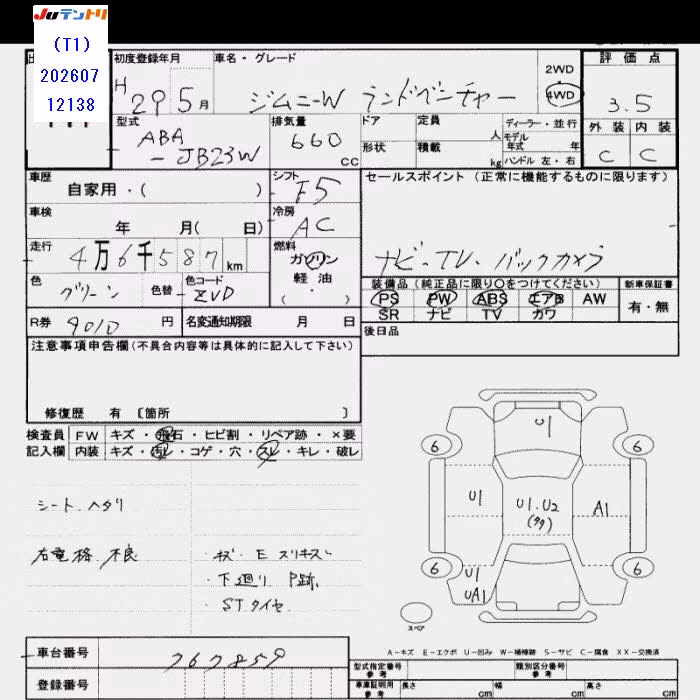 JUテントリ
(T1)
202607
12138
初度登録年月
H 29 5月
車名・グレード
ジムニーW ランドベンチャー
2WD
4WD
評価点
3.5
外装 内装
C C
型式
ABA
-JB23W
排気量
660
CC
ドア
形状
定員
人
積載
kg
ディーラー・並行
モデル年式 年
ハンドル 左・右
車歴
自家用・( )
シフト
F5
セールスポイント (正常に機能するものに限ります)
車検
年 月( 日)
冷房
AC
走行
4万6千587km
燃料
ガソリン
軽油
( )
ナビ・TV・バックカメラ
色
グリーン
色替
色コード
ZVD
装備品(純正品に限り○をつけてください)
新車保証書
PS PW ABS エアB AW
SR ナビ TV カワ
有・無
R券
9010円
名変通知期限 月 日
後日品
注意事項申告欄(不具合内容等は具体的に記入して下さい)
修復歴 有 〔箇所 〕
検査員
記入欄
FW キズ・飛石・ヒビ割・リペア跡・×要
内装 キズ・汚レ・コゲ・穴・スレ・キレ・破レ
シート ヘタリ
右電格 不良
・キズ・E スリキズ
・下廻り P跡
・STタイヤ
U1
6 6
U1
U1.U2
A1
6 6
U1
UA1
スペア
A-キズ E-エクボ U-凹み W-補修跡 S-サビ C-腐食 XX-交換済
車台番号
767859
登録番号
型式指定番号
参考
類別区分番号
参考
車庫証明用
参考
長さ cm 幅 cm 高さ cm